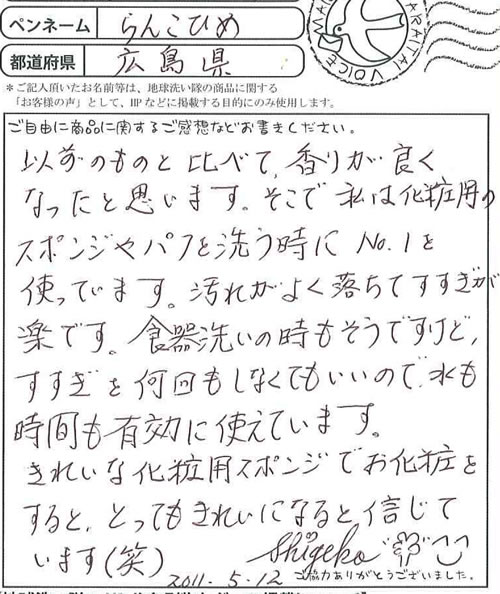 ペンネーム らんこひめ
都道府県 広島県
ARAITAI VOICE
＊ご記入頂いたお名前等は、地球洗い隊の商品に関する
「お客様の声」として、HPなどに掲載する目的にのみ使用します。
ご自由に商品に関するご感想などお書きください。
以前のものと比べて、香りが良く
なったと思います。そこで私は化粧用の
スポンジやパフを洗う時にNo.1を
使っています。汚れがよく落ちてすすぎが
楽です。食器洗いの時もそうですけど、
すすぎを何回もしなくてもいいので、水も
時間も有効に使えています。
きれいな化粧用スポンジでお化粧を
すると、とってもきれいになると信じて
います(笑) Shigeko
2011.5.12 ご協力ありがとうございました。